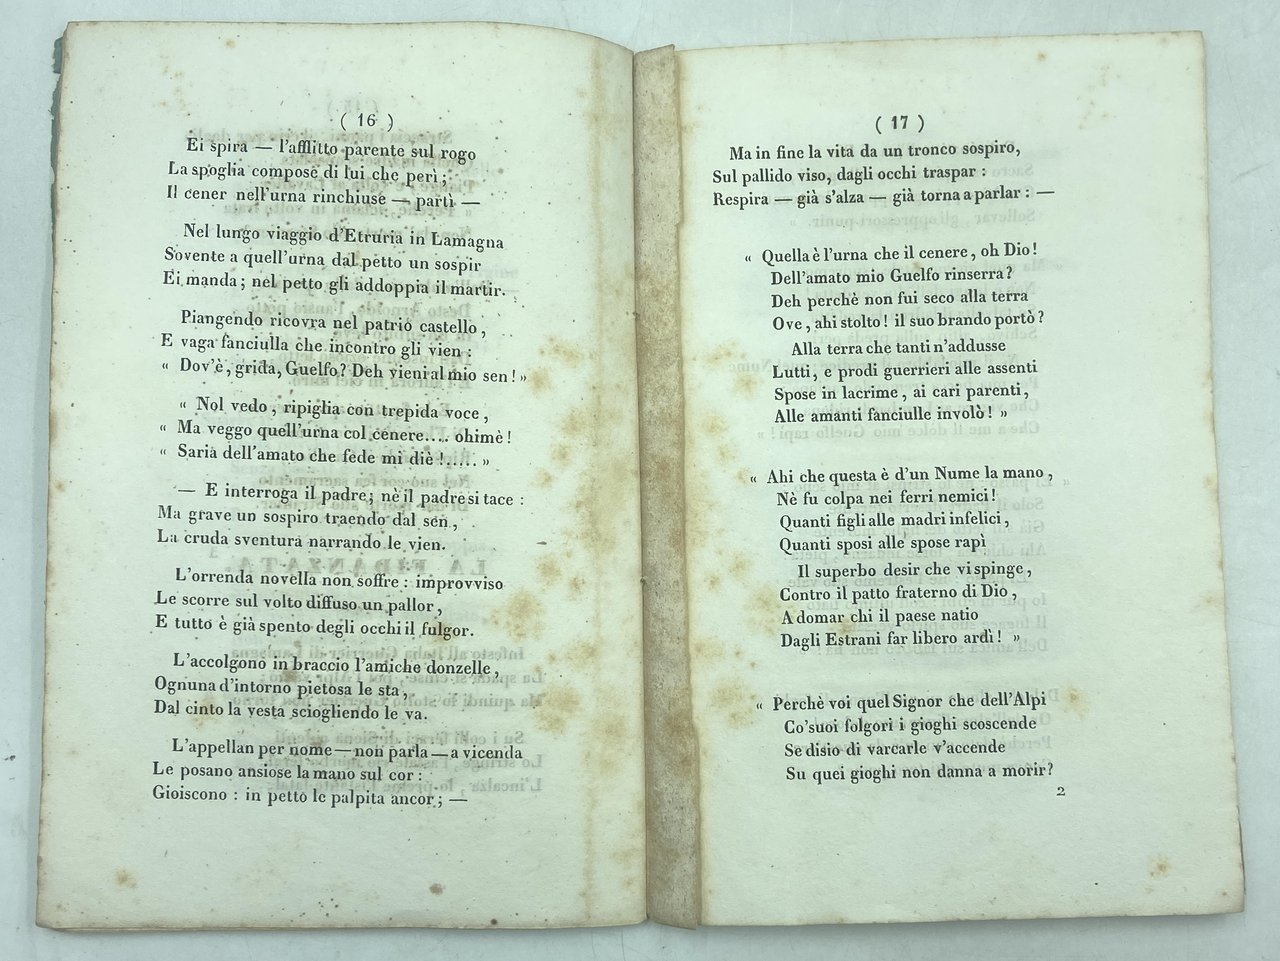 ( 16 )
Ei spira — l'afflitto parente sul rogo
La spoglia compose di lui che perì ;
Il cener nell'urna rinchiuse — partì —
Nel lungo viaggio d'Etruria in Lamagna
Sovente a quell'urna dal petto un sospir
Ei manda ; nel petto gli addoppia il martir.
Piangendo ricovra nel patrio castello ,
E vaga fanciulla che incontro gli vien :
« Dov'è , grida, Guelfo? Deh vieni al mio sen ! »
« Nol vedo , ripiglia con trepida voce ,
« Ma veggo quell'urna col cenere.... ohimè !
« Saria dell'amato che fede mi diè !..... »
— E interroga il padre ; nè il padre si tace :
Ma grave un sospiro traendo dal sen ,
La cruda sventura narrando le vien.
L'orrenda novella non soffre : improvviso
Le scorre sul volto diffuso un pallor ,
E tutto è già spento degli occhi il fulgor.
L'accolgono in braccio l'amiche donzelle ,
Ognuna d'intorno pietosa le sta ,
Dal cinto la vesta sciogliendo le va.
L'appellan per nome — non parla — a vicenda
Le posano ansiose la mano sul cor :
Gioiscono : in petto le palpita ancor ; —
( 17 )
Ma in fine la vita da un tronco sospiro,
Sul pallido viso, dagli occhi traspar :
Respira — già s'alza — già torna a parlar : —
« Quella è l'urna che il cenere , oh Dio !
Dell'amato mio Guelfo rinserra?
Deh perchè non fui seco alla terra
Ove , ahi stolto ! il suo brando portò ?
Alla terra che tanti n'addusse
Lutti, e prodi guerrieri alle assenti
Spose in lacrime , ai cari parenti,
Alle amanti fanciulle involò ! »
« Ahi che questa è d'un Nume la mano ,
Nè fu colpa nei ferri nemici !
Quanti figli alle madri infelici ,
Quanti sposi alle spose rapì
Il superbo desir che vi spinge ,
Contro il patto fraterno di Dio ,
A domar chi il paese natio
Dagli Estrani far libero ardì ! »
« Perchè voi quel Signor che dell'Alpi
Co'suoi folgori i gioghi scoscende
Se disio di varcarle v'accende
Su quei gioghi non danna a morir?
2